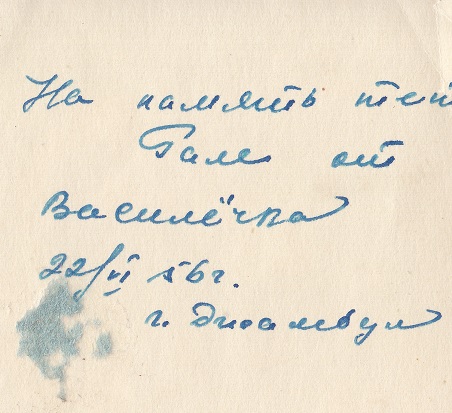 На память тет
Гале от
Василёчка
22/VI 56 г.
г. Джамбул